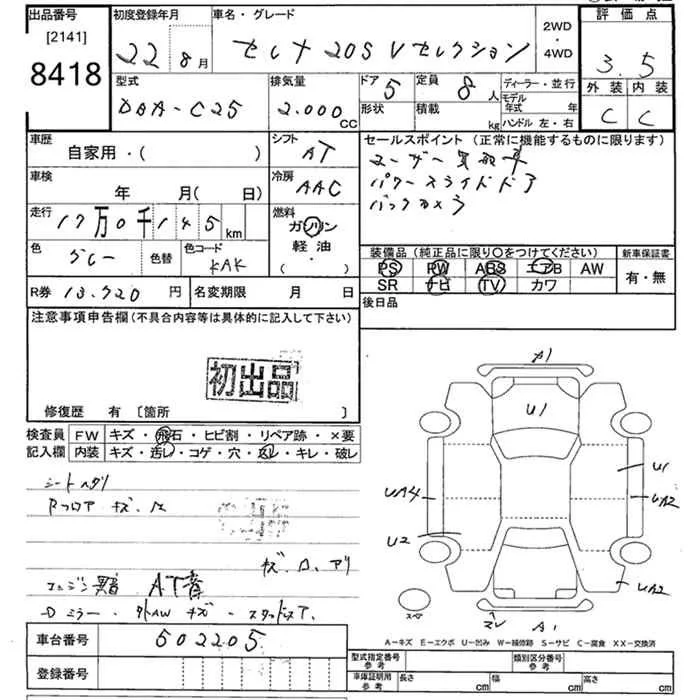 出品番号 初度登録年月 車名・グレード 2WD・4WD 評価点
[2141]
8418
22年8月 セレナ 20S Vセレクション 3.5
外装 内装
C C
型式 排気量 ドア 定員 ディーラー・並行
DBA-C25 2.000cc 5 8人 モデル年式 年
形状 積載 kg ハンドル 左・右
車歴 シフト セールスポイント (正常に機能するものに限ります)
自家用・( ) AT ユーザー買取車
車検 冷房 パワースライドドア
年 月( 日) AAC バックカメラ
走行 燃料
17万0千145km ガソリン
軽油・
( )
色 色替 色コード
グレー KAK
装備品(純正品に限り〇をつけてください) 新車保証書
PS PW ABS エアB AW 有・無
SR ナビ TV カワ
R券 13.720円 名変期限 月 日 後日品
注意事項申告欄(不具合内容等は具体的に記入して下さい)
初出品
修復歴 有 [箇所 ]
検査員 FW キズ・飛石・ヒビ割・リペア跡・×要
記入欄 内装 キズ・汚レ・コゲ・穴・スレ・キレ・破レ
シートヘタリ
Rフロア キズ
エンジン異音 AT音
ミラー・ キズ・
A1
U1
U1
UA4
UA2
U2
UA2
スペア
A1
A-キズ E-エクボ U-凹み W-補修跡 S-サビ C-腐食 XX-交換済
車台番号 502205
登録番号
型式指定番号 参考 類別区分番号 参考
車庫証明用 参考 長さ cm 幅 cm 高さ cm